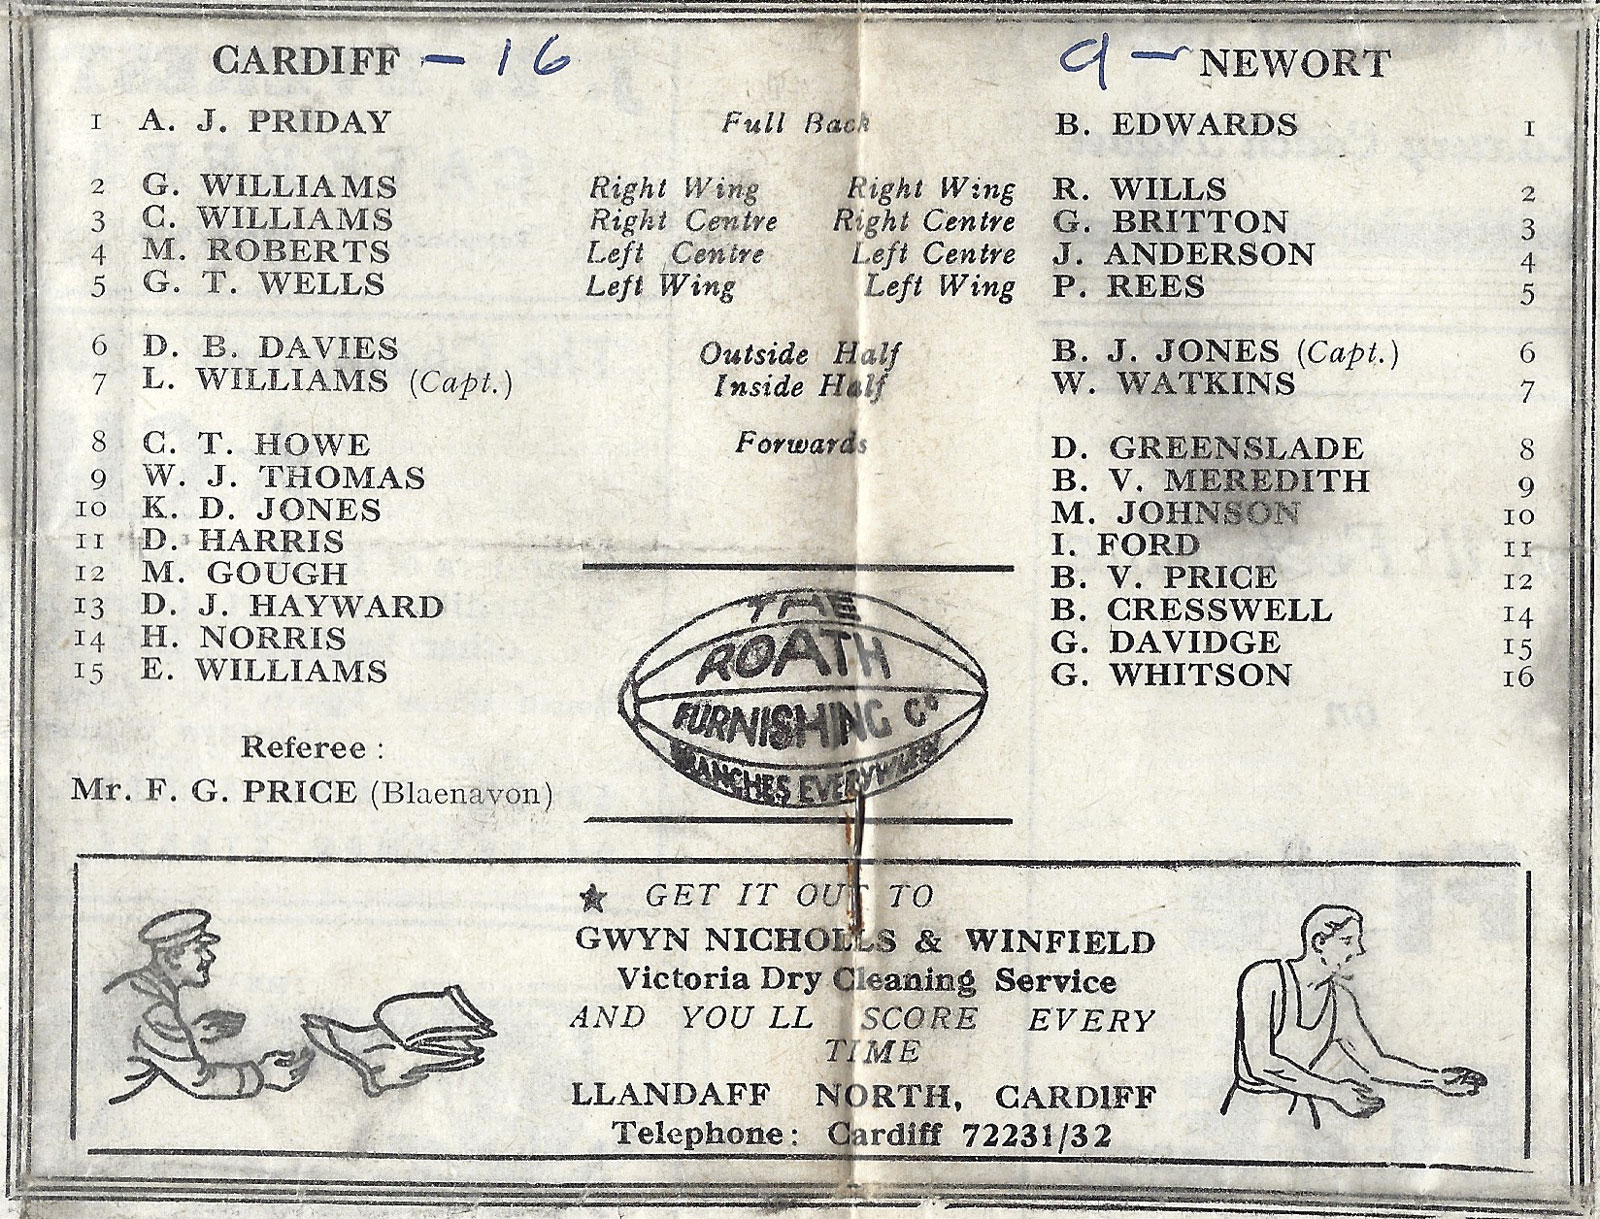 CARDIFF - 16
9 - NEWORT
1 A. J. PRIDAY Full Back B. EDWARDS 1
2 G. WILLIAMS Right Wing Right Wing R. WILLS 2
3 C. WILLIAMS Right Centre Right Centre G. BRITTON 3
4 M. ROBERTS Left Centre Left Centre J. ANDERSON 4
5 G. T. WELLS Left Wing Left Wing P. REES 5
6 D. B. DAVIES Outside Half B. J. JONES (Capt.) 6
7 L. WILLIAMS (Capt.) Inside Half W. WATKINS 7
8 C. T. HOWE Forwards D. GREENSLADE 8
9 W. J. THOMAS B. V. MEREDITH 9
10 K. D. JONES M. JOHNSON 10
11 D. HARRIS I. FORD 11
12 M. GOUGH B. V. PRICE 12
13 D. J. HAYWARD B. CRESSWELL 14
14 H. NORRIS G. DAVIDGE 15
15 E. WILLIAMS G. WHITSON 16
Referee :
Mr. F. G. PRICE (Blaenavon)
THE
ROATH
FURNISHING Co
BRANCHES EVERYWHERE
★ GET IT OUT TO
GWYN NICHOLLS & WINFIELD
Victoria Dry Cleaning Service
AND YOU LL SCORE EVERY
TIME
LLANDAFF NORTH, CARDIFF
Telephone: Cardiff 72231/32